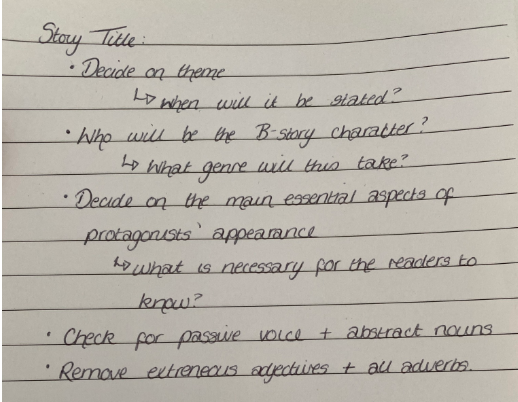 Story Title:
• Decide on theme
↳ When will it be stated?
• Who will be the B-story character?
↳ What genre will this take?
• Decide on the main essential aspects of
protagonists' appearance
↳ What is necessary for the readers to
know?
• Check for passive voice + abstract nouns
• Remove extreneous adjectives + all adverbs.